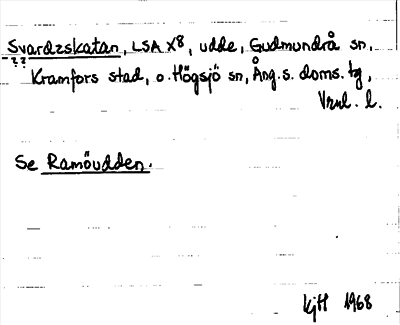 Svardzskatan, LSA X8, udde, Gudmundrå sn,
- ? ?
Kramfors stad, o. Högsjö sn, Ång. s. doms. tg,
Vrnl. l.
Se Ramöudden.
KjH 1968